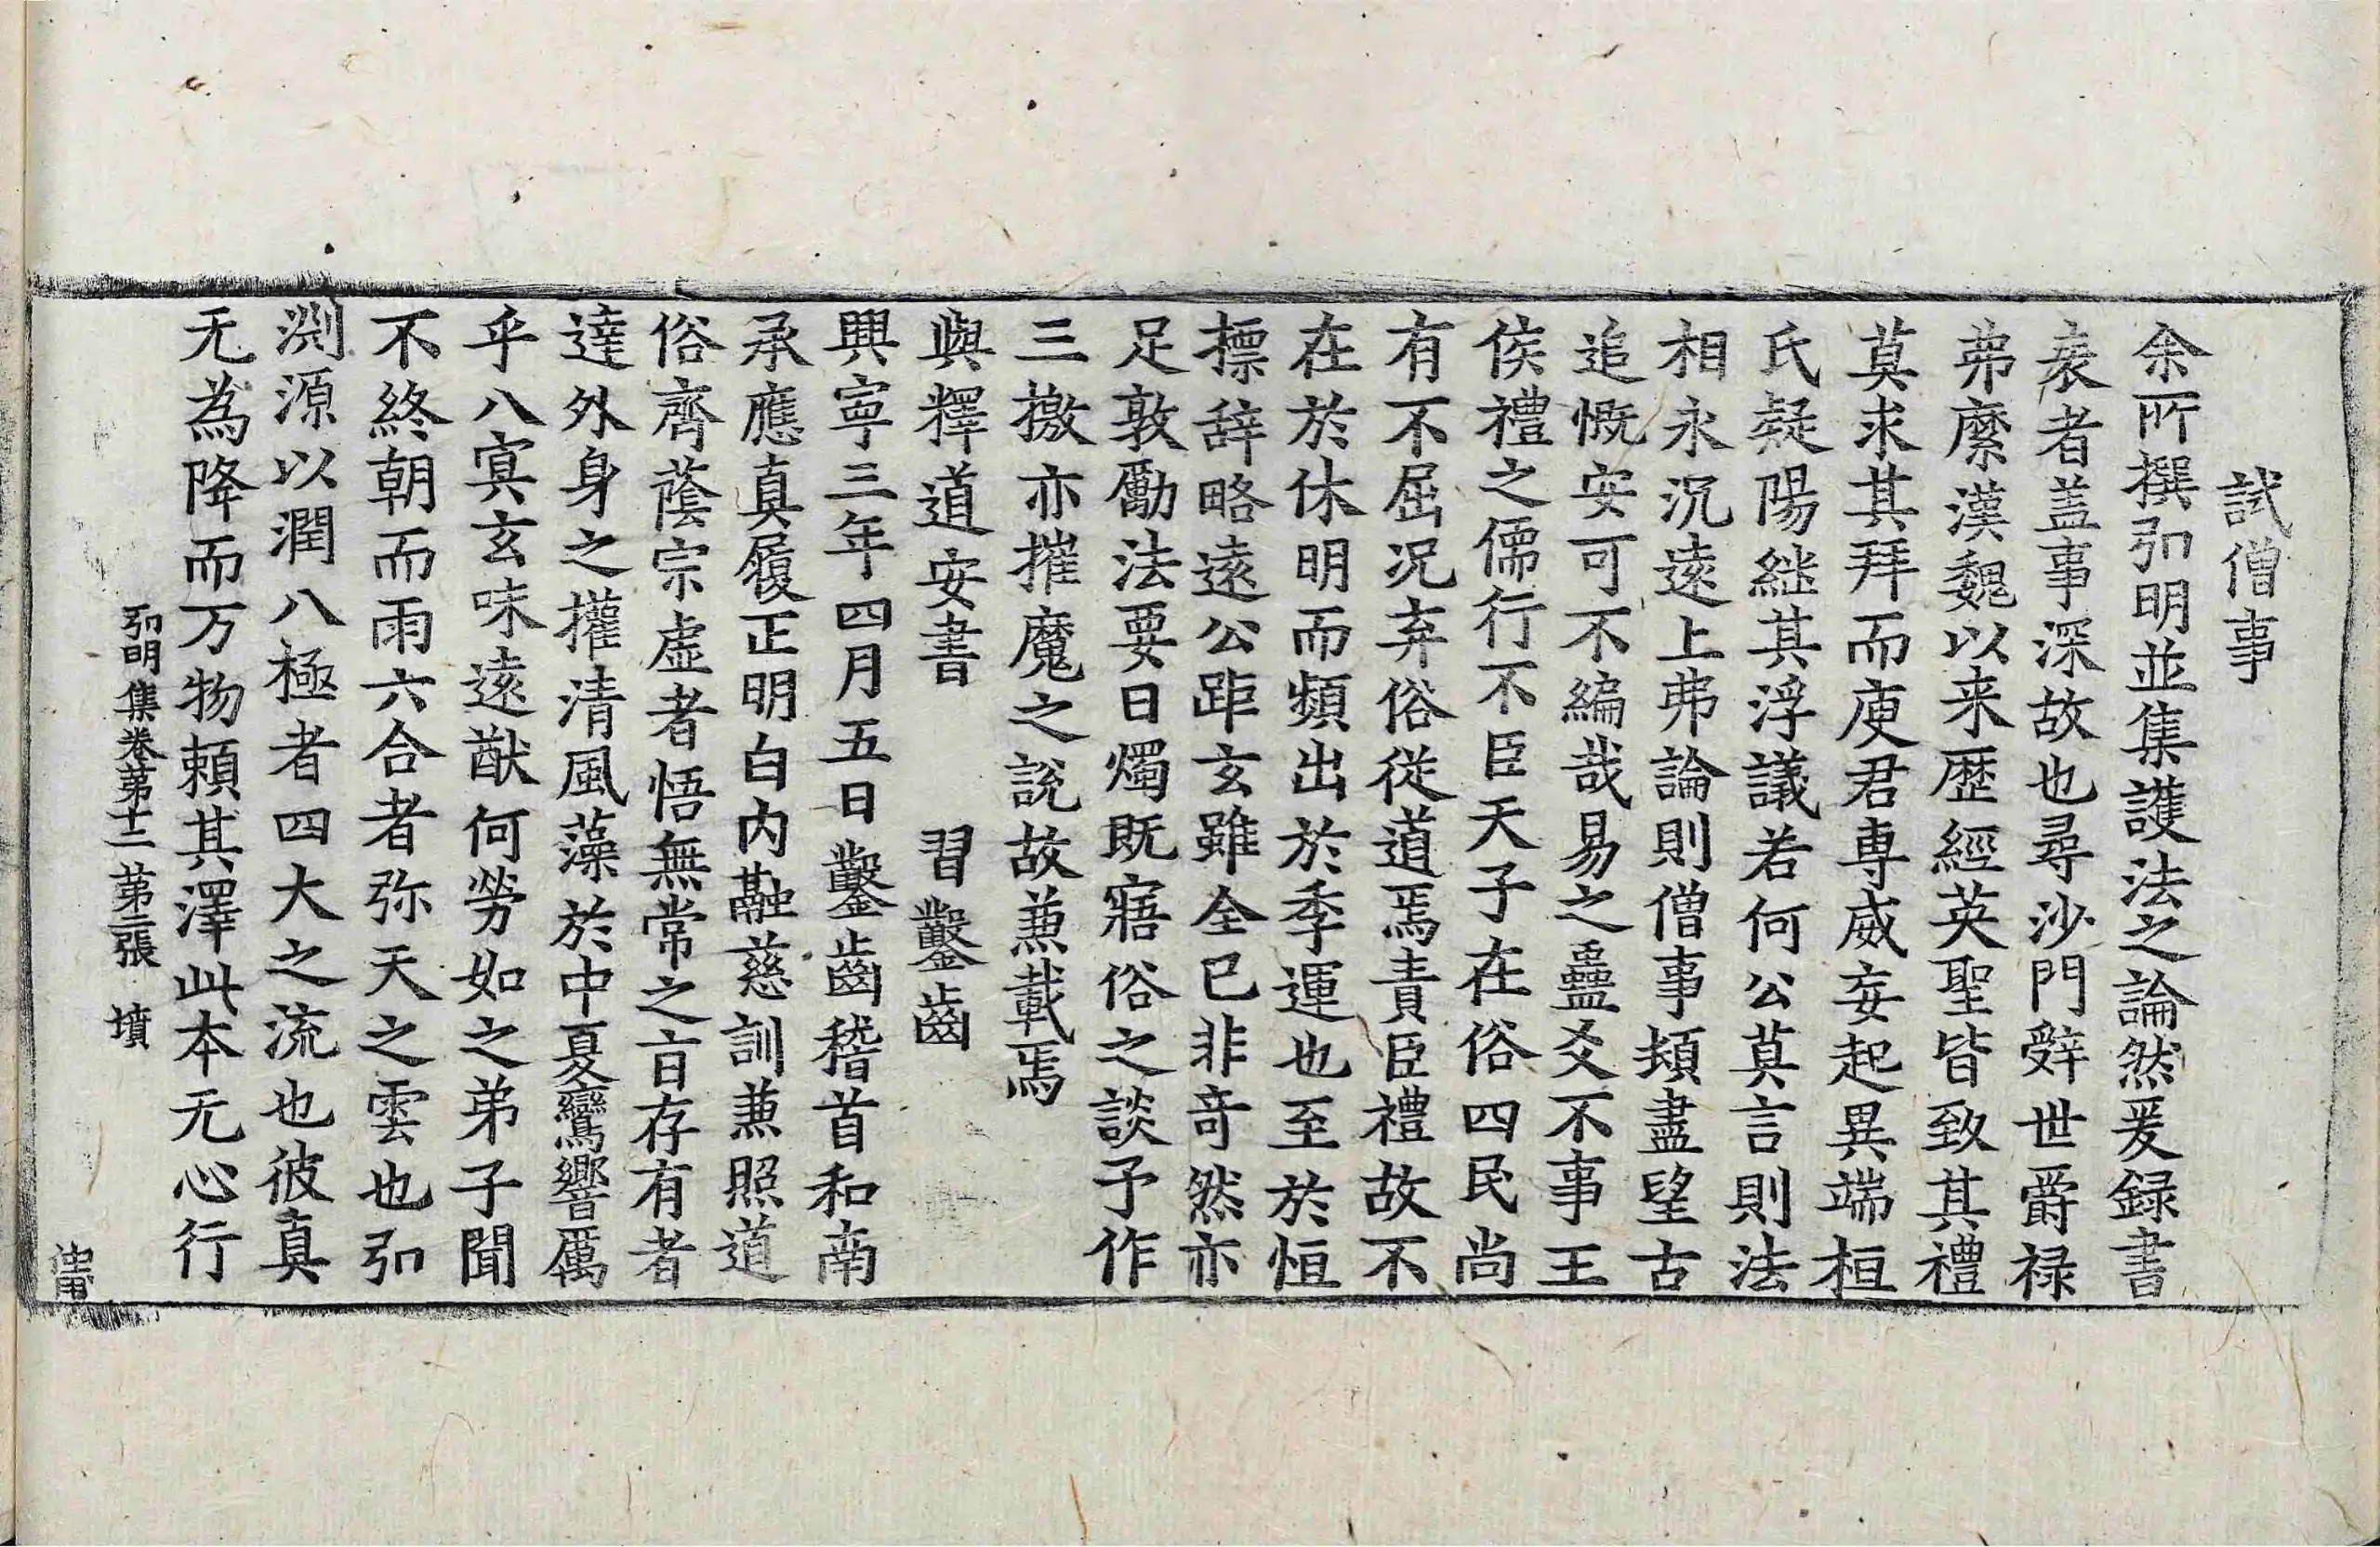 試僧事
余所撰弘明並集護法之論然爰録書
表者盖事深故也尋沙門辤世爵禄
弗縻漢魏以来歷經英聖皆致其禮
莫求其拜而庾君専威妄起異端桓
氏疑陽継其浮議若何公莫言則法
相永沉遠上弗論則僧事頓盡望古
追慨安可不編哉易之蠱爻不事王
侯禮之儒行不臣天子在俗四民尚
有不屈况弃俗従道焉責臣禮故不
在於休明而頻出於季運也至於恒
摽辞略遠公距玄雖全已非竒然亦
足敦勵法要日燭既寤俗之談予作
三檄亦摧魔之説故兼載焉
與釋道安書　習鑿齒
興寧三年四月五日鑿齒稽首和南
承應真履正明白内融慈訓兼照道
俗齊蔭宗虚者悟無常之㫖存有者
達外身之權清風藻於中夏鸞響厲
乎八㝠玄味遠猷何勞如之弟子聞
不終朝而雨六合者弥天之雲也弘
渊源以潤八極者四大之流也彼真
无為降而万物頼其澤此本无心行
弘明集卷第十二　第二張　墳